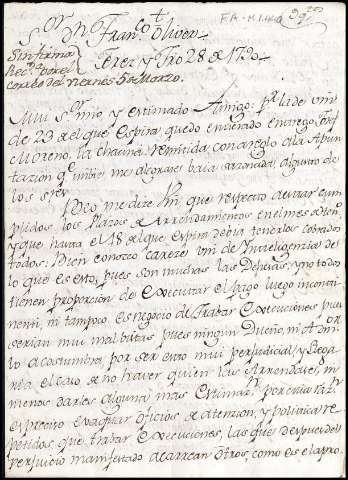 S.r D.n Fran.co t Oliver
FA-M.1.
Xerez y Fro 28 de 1730
Sin firma
Rec.da por el
correo del viernes 5 de Marzo.
Mui S.r mio y estimado Amigo: P.r la de Vm
de 23 de el que espira, quedo enterado entregó D.n Jph
Moreno, la chacina remitida con arreglo a la Apun
tazion q.e imbie me alegrare baia arazonada, al gusto de
los S.res
Deo me dize Vm que respecto de estar cum
plidos los Plazos de Arrendamientos en el mes de
y que hasta el 18 de el que espira debia tenerlos cobrados
todos: Bien conozco careze Vm de Intelixencia de
lo que es esto, pues son muchas las Dehesas, y no todos
tienen proporcion de executar el pago luego inconti
nenti, ni tampoco es negocio de Trabar Execuziones, pues
serian mui mal vistas, pues ningun Dueño, ni Adm.or
lo acostumbra, por ser esto mui perjudicial, y llega
ria el caso de no haver quien las Arrendase, ni
menos darles alguna mas Estimaz.n por cuia raz.n
es preciso evaquar oficios de atenzion, y politica re
petidos, que trabar execuciones, las que despues del
perjuicio manifestado acarrean otros, como es el apro